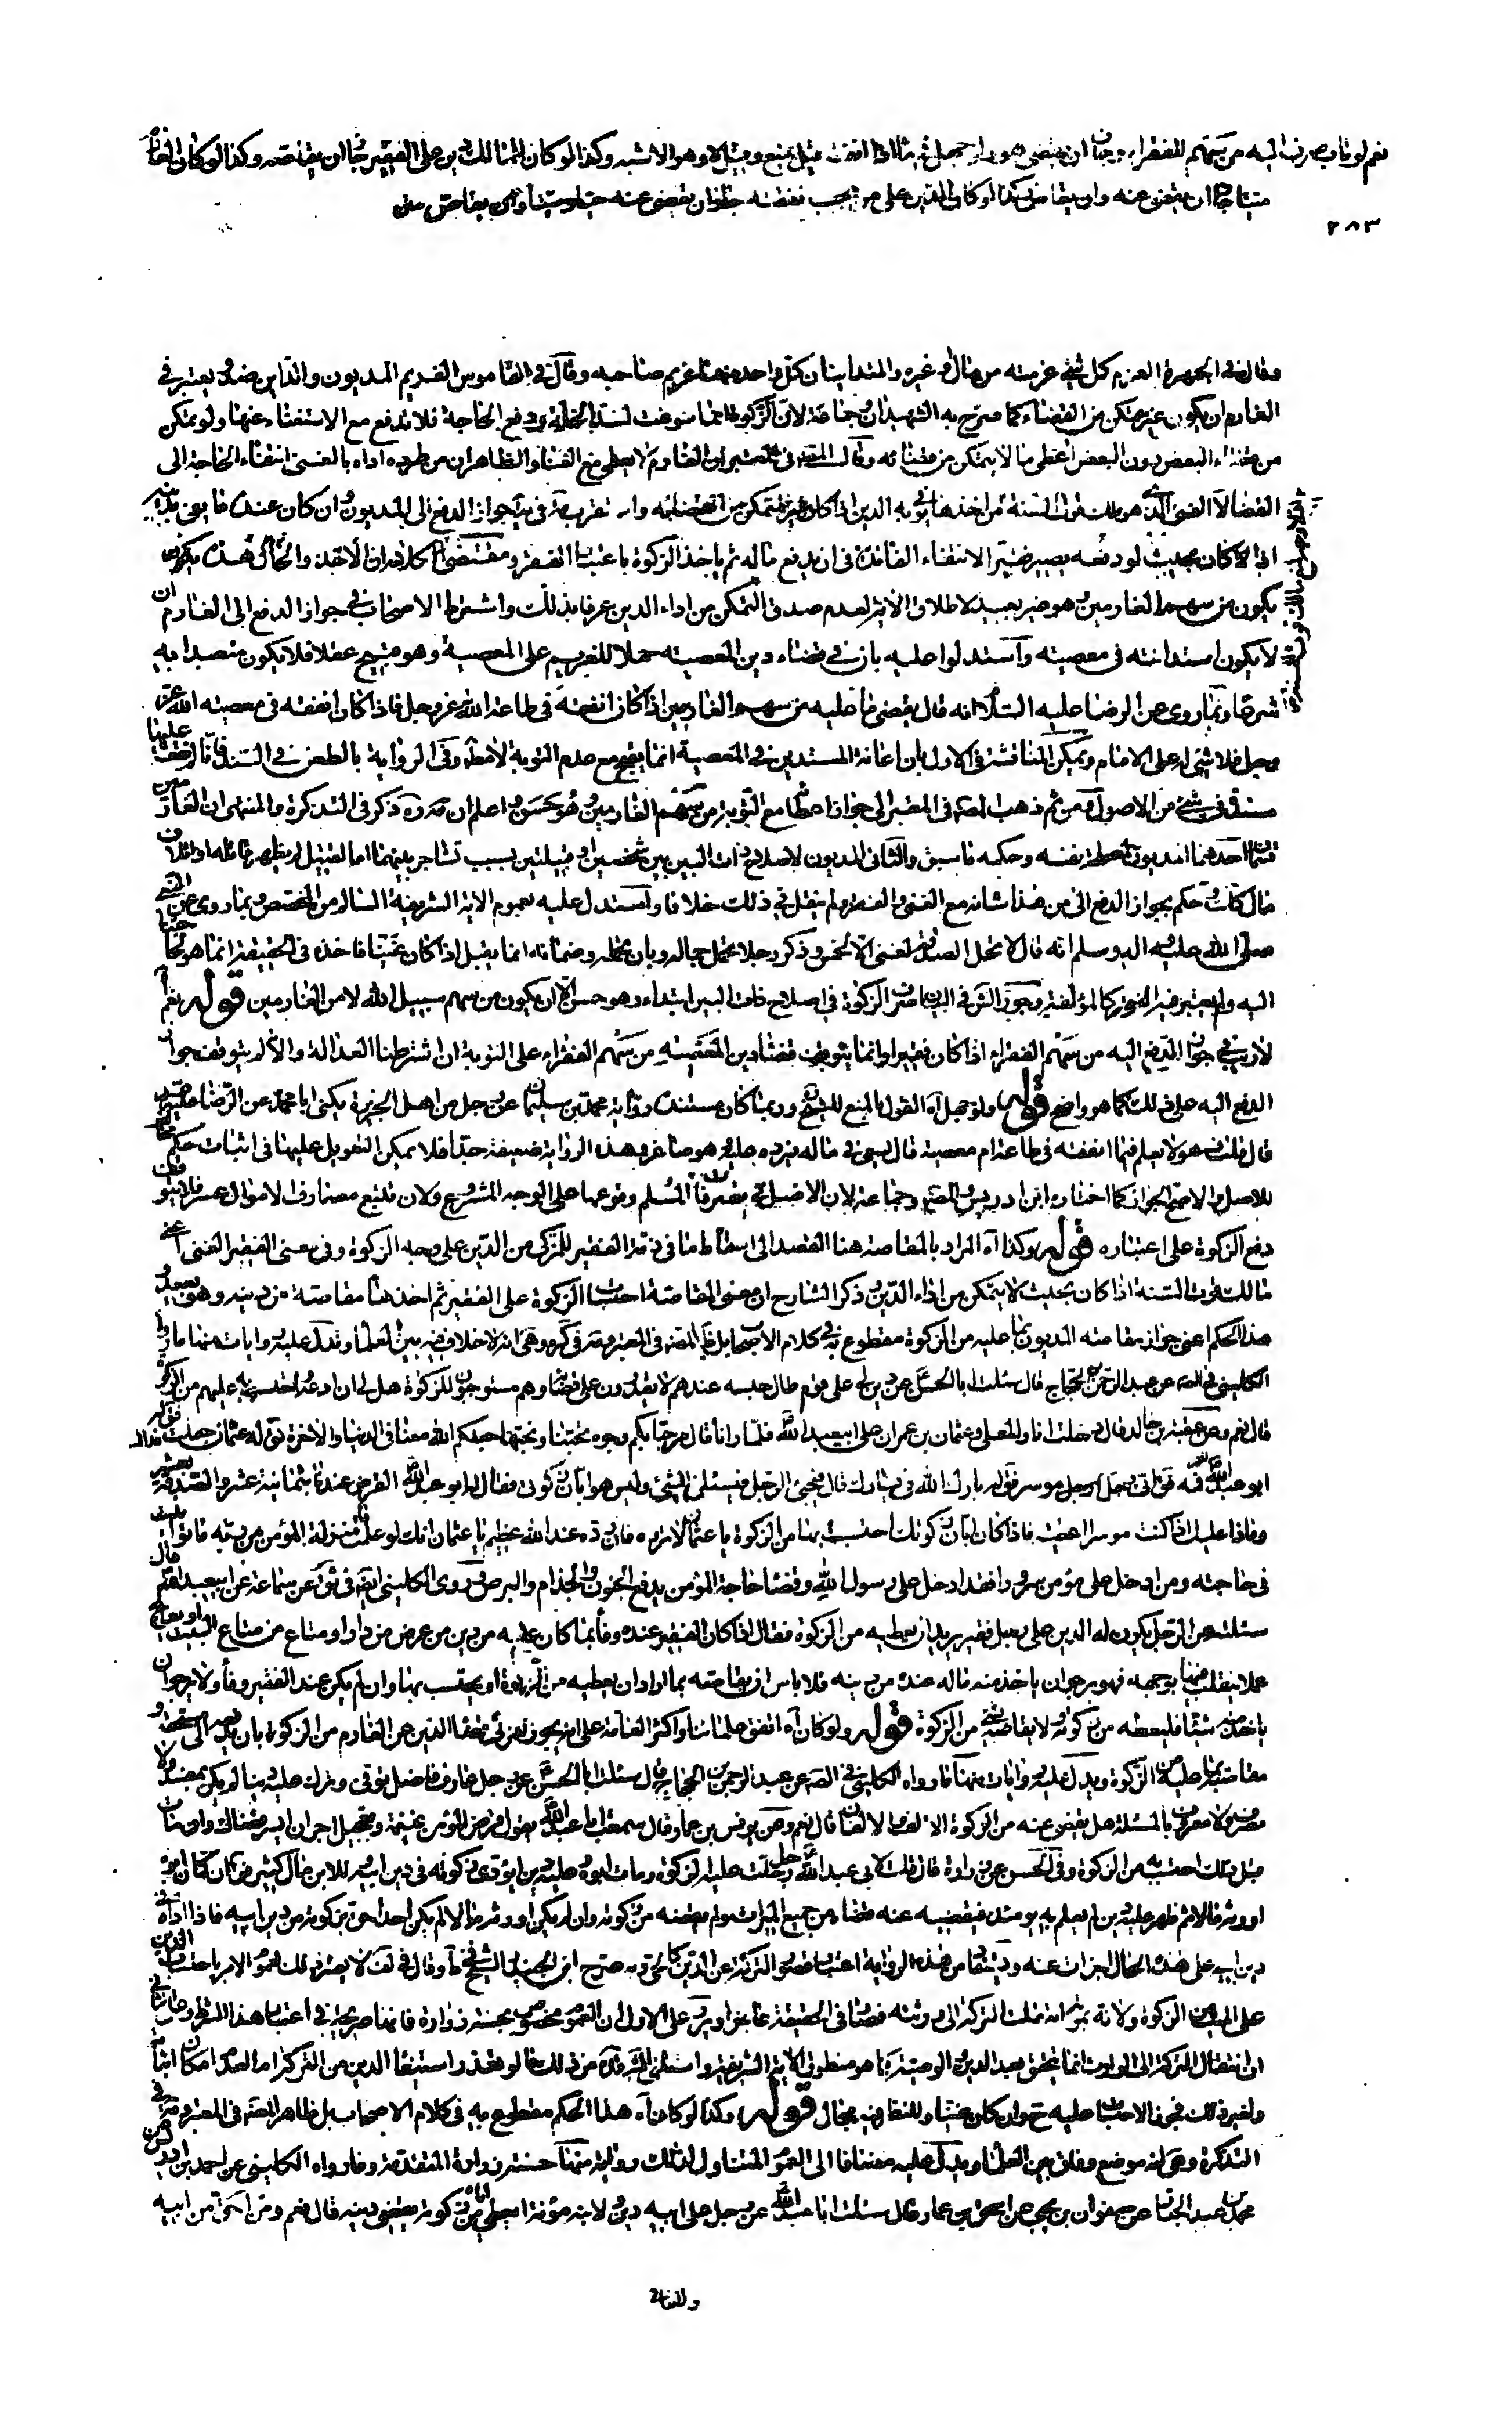 نعم لو تاب صرف اليه من سهم الفقراء وجاز ان يقضى هو ولو جهل فى ماذا انفقه قيل يمنع وقيل لا وهو الاشبه وكذا لو كان للمالك دين على الفقير جاز ان يقاصه وكذا لو كان الغارم
ميتا جاز ان يقضى عنه وان يقاص وكذا لو كان الدين على من يجب نفقته جاز ان يقضى عنه حيا او ميتا وان يقاص
٢٨٣
وقال فى الجمهرة الغرم كل شئ غرمته من مال او غيره والمتداينان كل واحد منهما غريم صاحبه وقال فى القاموس الغريم المديون والداين ضد ويعتبر فى
الغارم ان يكون غير متمكن من القضاء كما صرح به الشهيدان وجماعة لان الزكوة انما شرعت لسد الخلة ودفع الحاجة فلا تدفع مع الاستغناء عنها ولو تمكن
من قضاء البعض دون البعض اعطى ما لا يتمكن من قضائه وقال المصنف فى المعتبر ان الغارم لا يعطى مع الغنا والظاهر ان مراده بالغنى انتفاء الحاجة الى
القضا لا الغنى الذى هو ملك قوت السنة
اذا كان بحيث لو دفعه يصير فقيرا لانتفاء الفائدة فى ان يدفع ماله ثم ياخذ الزكوة باعتبار الفقر ومقتضى كلامه ان الاخذ والحال هذه
يكون من سهم الغارمين وهو غير بعيد لاطلاق الاية لعدم صدق التمكن من اداء الدين عرفا بذلك واشترط الاصحاب فى جواز الدفع الى الغارم ان
لا يكون استدانته فى معصية واستدلوا عليه بان فى قضاء دين المعصية حملا للغريم على المعصية وهو قبيح عقلا فلا يكون متعبدا به
شرعا وبما روى عن الرضا عليه السلام انه قال يقضى ما عليه من سهم الغارمين اذا كان انفقه فى طاعة الله عز وجل فاذا كان انفقه فى معصية الله عز
وجل فلا شئ له على الامام ويمكن المناقشة فى الاول بان اعانة المستدين فى المعصية انما يقبح مع عدم التوبة لا مطلقا وفى الرواية بالطعن فى السند فانا لم نقف عليها
مسندة فى شئ من الاصول ومن ثم ذهب المصنف فى المعتبر الى جواز اعطائه مع التوبة من سهم الغارمين وهو حسن واعلم ان العلامة ذكر فى التذكرة والمنتهى ان الغارمين
قسمان احدهما المديون لمصلحة نفسه وحكمه ما سبق والثانى المديون لاصلاح ذات البين بين شخصين او قبيلتين بسبب تشاجر بينهما اما لقتيل لم يظهر قاتله او اتلاف
مال كذلك وحكم بجواز الدفع الى من هذا شانه مع الغنى والفقر ولم ينقل فى ذلك خلافا واستدل عليه بعموم الاية الشريفة السالم من المخصص وبما روى عن النبى
صلى الله عليه واله وسلم انه قال لا تحل الصدقة لغنى الا لخمس وذكر رجلا تحمل حمالة وبان تحمله وضمانه انما يقبل اذا كان غنيا فاخذه فى الحقيقة انما هو لحاجتنا
اليه ولم يعتبر فيه الفقر كالمؤلفة وجوز الش فى البيان صرف الزكوة فى اصلاح ذات البين ابتداء وهو حسن الا ان يكون من سهم سبيل الله لا من الغارمين قوله نعم آه
لا ريب فى جواز الدفع اليه من سهم الفقراء اذا كان فقيرا وانما يتوقف قضاء دين المعصية من سهم الفقراء على التوبة ان اشترطنا العدالة والا لم يتوقف جواز
الدفع اليه على ذلك كما هو واضح قوله ولو جهل آه القول بالمنع للشيخ وربما كان مستنده رواية محمد بن سليمان عن رجل من اهل الجزيرة يكنى ابا محمد عن الرضا عليه السلام
قال قلت فهو لا يعلم فيما انفقه فى طاعة ام معصية قال يسعى فى ماله فيرده عليه وهو صاغر وهذه الرواية ضعيفة جدا فلا يمكن التعويل عليها فى اثبات حكم مخالف
للاصل والاصح الجواز كما اختاره ابن ادريس والمصنف وجماعة لان الاصل فى تصرفات المسلم وقوعها على الوجه المشروع ولان تتبع مصارف الاموال عسر فلا يتوقف
دفع الزكوة على اعتباره قوله وكذا آه المراد بالمقاصة هنا القصد الى اسقاط ما فى ذمة الفقير للمزكى من الدين على وجه الزكوة وفى معنى الفقير الغنى اعنى
مالك قوت السنة اذا كان بحيث لا يتمكن من اداء الدين وذكر الشارح ان معنى المقاصة احتساب الزكوة على الفقير ثم اخذها مقاصة من دينه وهو بعيد
هذا الحكم اعنى جواز مقاصة المديون بما عليه من الزكوة مقطوع به فى كلام الاصحاب بل ظاهر المصنف فى المعتبر والعلامة فى التذكرة والمنتهى انه لا خلاف فيه بين العلماء وتدل عليه روايات منها ما رواه
الكلينى فى الصحيح عن عبد الرحمن بن الحجاج قال سئلت ابا الحسن عن دين لى على قوم طال حبسه عندهم لا يقدرون على قضائه وهم مستوجبون للزكوة هل لى ان ادعه واحتسب به عليهم من الزكوة
قال نعم وعن عقبة بن خالد قال دخلت انا والمعلى وعثمان بن عمران على ابى عبد الله فلما رانا قال مرحبا بكم وجوه تحبنا ونحبها جعلكم الله معنا فى الدنيا والاخرة فقال له عثمان جعلت فداك
ابو عبد الله فمه قال انى رجل موسر فقال له بارك الله فى يسارك قال فيجئ الرجل فيسئلنى الشئ وليس هو ابان زكوتى فقال له ابو عبد الله القرض عندنا بثمانية عشر والصدقة بعشرة
وماذا عليك اذا كنت موسرا اعطيته فاذا كان ابان زكوتك احتسبت بها من الزكوة يا عثمان لا ترده فان رده عند الله عظيم يا عثمان انك لو علمت ما منزلة المؤمن من ربه ما توانيت
فى حاجته ومن ادخل على مؤمن سرورا فقد ادخل على رسول الله وقضاء حاجة المؤمن يدفع الجنون والجذام والبرص وروى الكلينى ايضا فى الموثق عن سماعة عن ابى عبد الله قال
سئلته عن الرجل يكون له الدين على رجل فقير يريد ان يعطيه من الزكوة فقال اذا كان الفقير عنده وفاء بما كان عليه من دين من عرض من دار او متاع من متاع البيت او يعالج
عملا يتقلب فيها بوجهه فهو يرجو ان ياخذ منه ماله عنده من دينه فلا باس ان يقاصه بما اراد ان يعطيه من الزكوة او يحتسب بها وان لم يكن عند الفقير وفاء ولا يرجو ان
ياخذ منه شيئا فليعطه من زكوته ولا يقاصه بشئ من الزكوة قوله ولو كان آه اتفق علمائنا واكثر العامة على انه يجوز للمزكى قضاء الدين عن الغارم من الزكوة بان يدفعه الى مستحقه و
مقاصته بما عليه من الزكوة ويدل عليه روايات منها ما رواه الكلينى فى الصحيح عن عبد الرحمن بن الحجاج قال سئلت ابا الحسن عن رجل عارف فاضل توفى وترك عليه دينا لم يكن بمفسد ولا
مسرف ولا معروف بالمسئلة هل يقضى عنه من الزكوة الالف والالفان قال نعم وعن يونس بن عمار قال سمعت ابا عبد الله يقول قرض المؤمن غنيمة وتعجيل اجر ان ايسر قضاك وان مات
قبل ذلك احتسبت به من الزكوة وفى الحسن عن زرارة قال قلت لابى عبد الله رجل حلت عليه الزكوة ومات ابوه وعليه دين ايؤدى زكوته فى دين ابيه وللابن مال كثير فقال ان كان ابوه
اورثه مالا ثم ظهر عليه دين لم يعلم به يومئذ فيقضيه عنه قضاه من جميع الميراث ولم يقضه من زكوته وان لم يكن اورثه مالا لم يكن احد احق بزكوته من دين ابيه فاذا اداها فى
دين ابيه على هذه الحال اجزات عنه ويستفاد من هذه الرواية اعتبار قصور التركة عن الدين كالحى وبه صرح ابن الجنيد والشيخ فى ط وقال فى لف لا يعتبر ذلك لعموم الامر باحتساب الدين
على الميت من الزكوة ولانه بموته انتقلت التركة الى ورثته فصار فى الحقيقة عاجزا ويرد على الاول ان العموم مخصوص بحسنة زرارة فانها صريحة فى اعتبار هذا الشرط وعلى الثانى
ان انتقال التركة الى الوارث انما يتحقق بعد الدين والوصية كما هو منطوق الاية الشريفة واستثنى الشارح من ذلك ما لو تعذر استيفاء الدين من التركة اما لعدم امكان اثباته
او لغير ذلك فجوز الاحتساب عليه ح وان كان غنيا وللنظر فيه مجال قوله وكذا لو كان آه هذا الحكم مقطوع به فى كلام الاصحاب بل ظاهر المصنف فى المعتبر والعلامة فى
التذكرة وهى انه موضع وفاق بين العلماء ويدل عليه مضافا الى العموم المتناول لذلك رواية منها حسنة زرارة المتقدمة وما رواه الكلينى عن احمد بن ادريس عن
محمد بن عبد الجبار عن صفوان بن يحيى عن اسحق بن عمار قال سئلت ابا عبد الله عن رجل على ابيه دين ولابنه مؤنة ايعطى اباه من زكوته يقضى دينه قال نعم ومن احق من ابيه